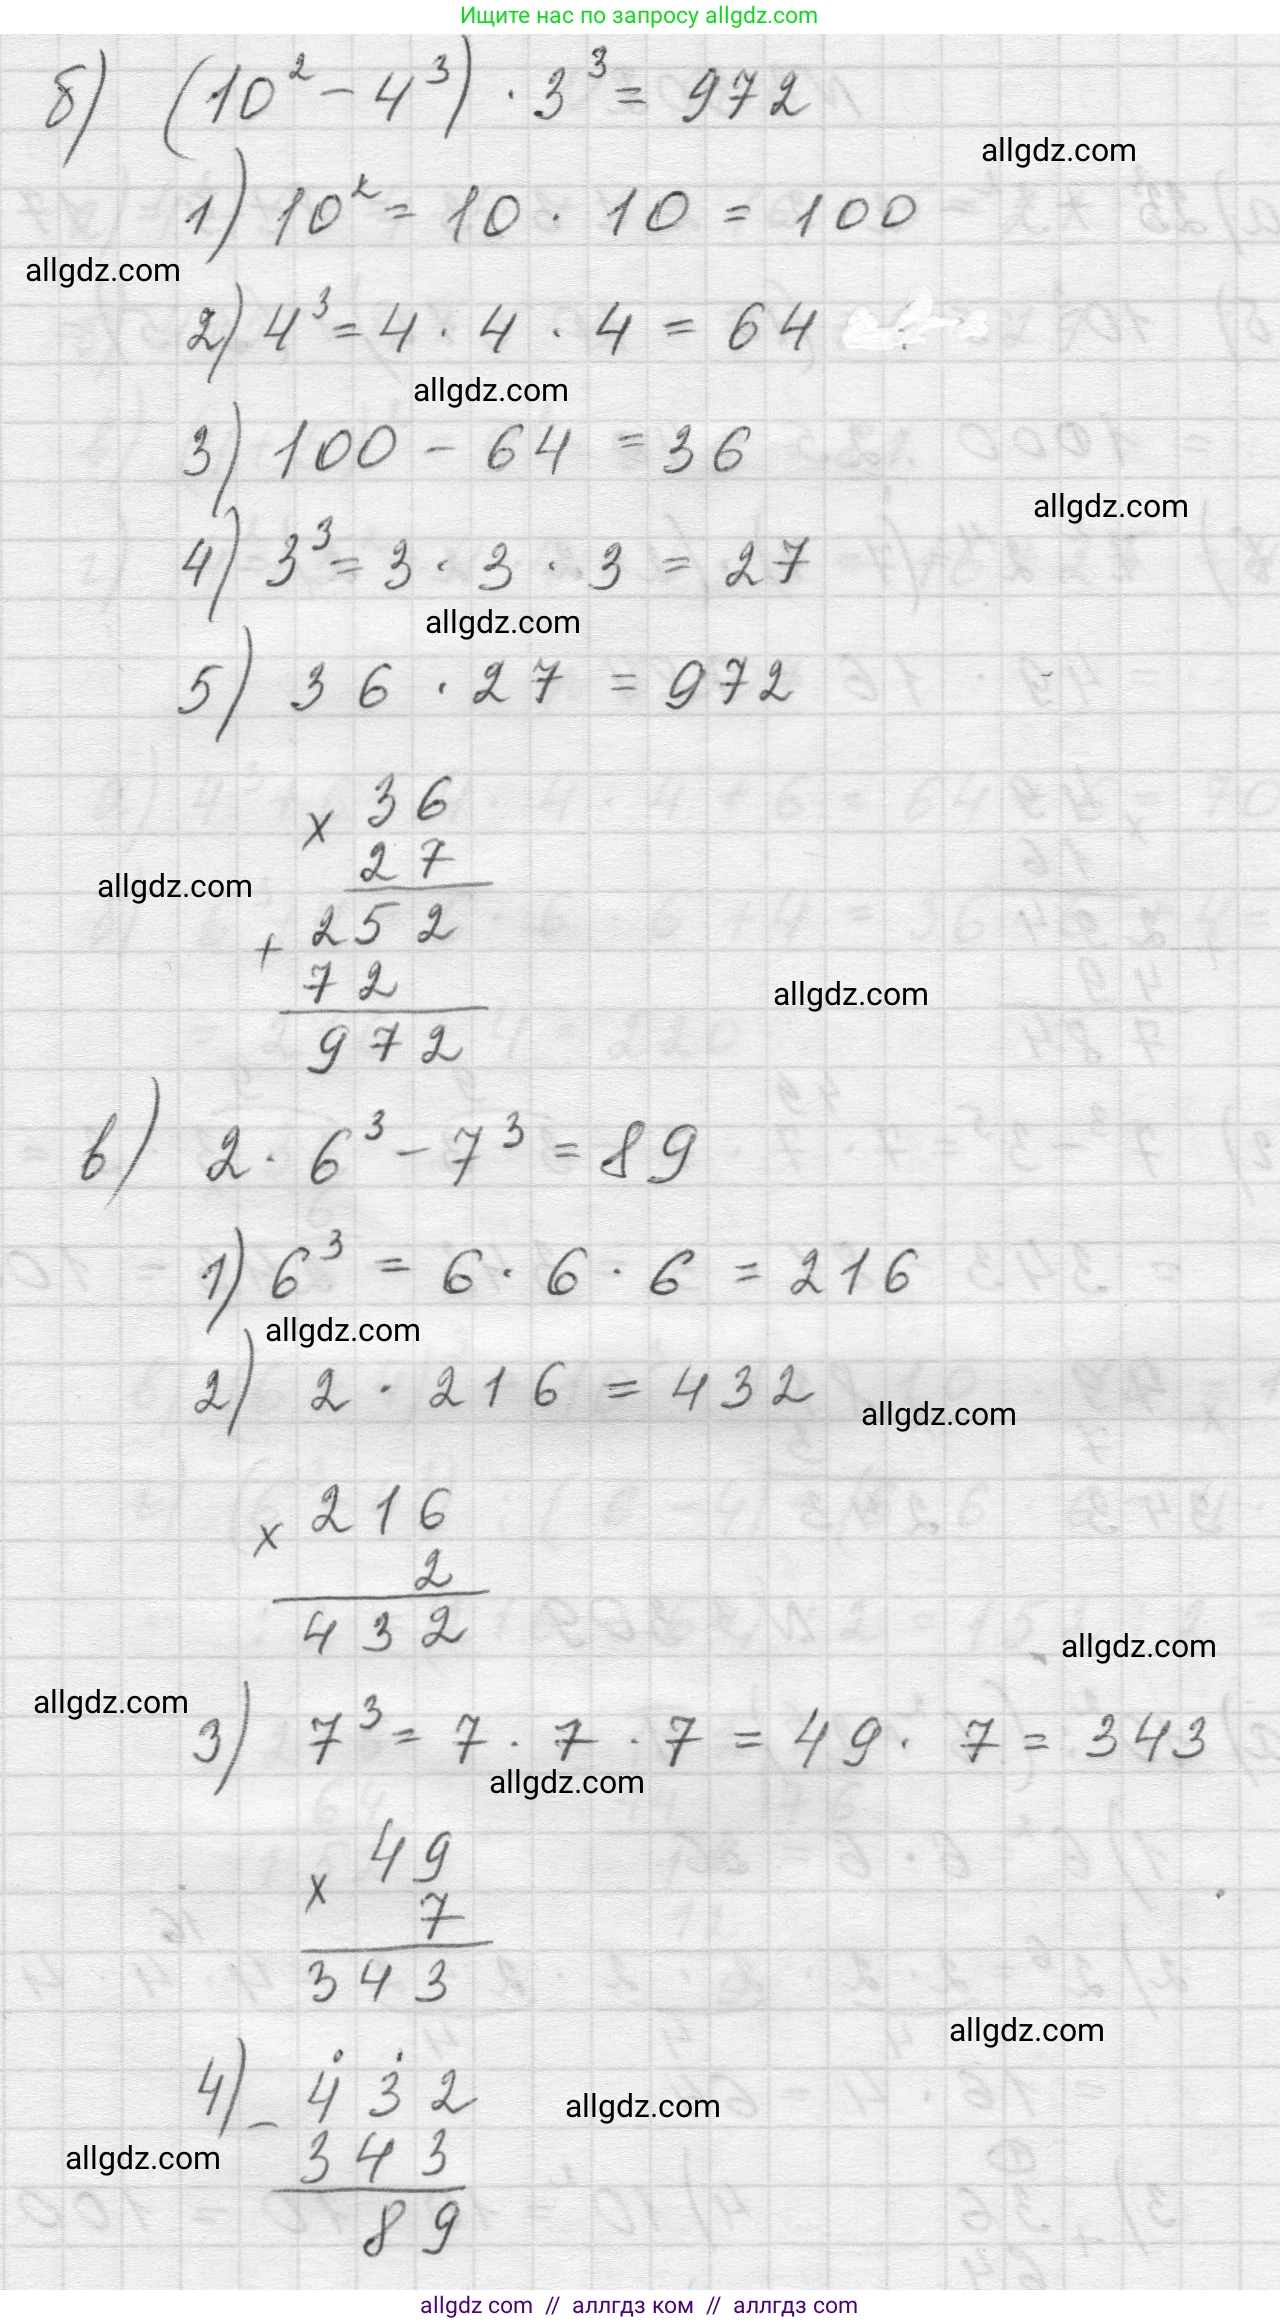 Ищите нас по запросу allgdz.com
б) (10² - 4³) · 3³ = 972
allgdz.com
1) 10² = 10 · 10 = 100
allgdz.com
2) 4³ = 4 · 4 · 4 = 64
allgdz.com
3) 100 - 64 = 36
allgdz.com
4) 3³ = 3 · 3 · 3 = 27
allgdz.com
5) 36 · 27 = 972
x 36
27
allgdz.com
+ 252
72
allgdz.com
972
в) 2 · 6³ - 7³ = 89
1) 6³ = 6 · 6 · 6 = 216
allgdz.com
2) 2 · 216 = 432
allgdz.com
x 216
2
432
allgdz.com
allgdz.com
3) 7³ = 7 · 7 · 7 = 49 · 7 = 343
allgdz.com
x 49
7
343
allgdz.com
4) - 432
allgdz.com
343
allgdz.com
89
allgdz com // аллгдз ком // аллгдз com